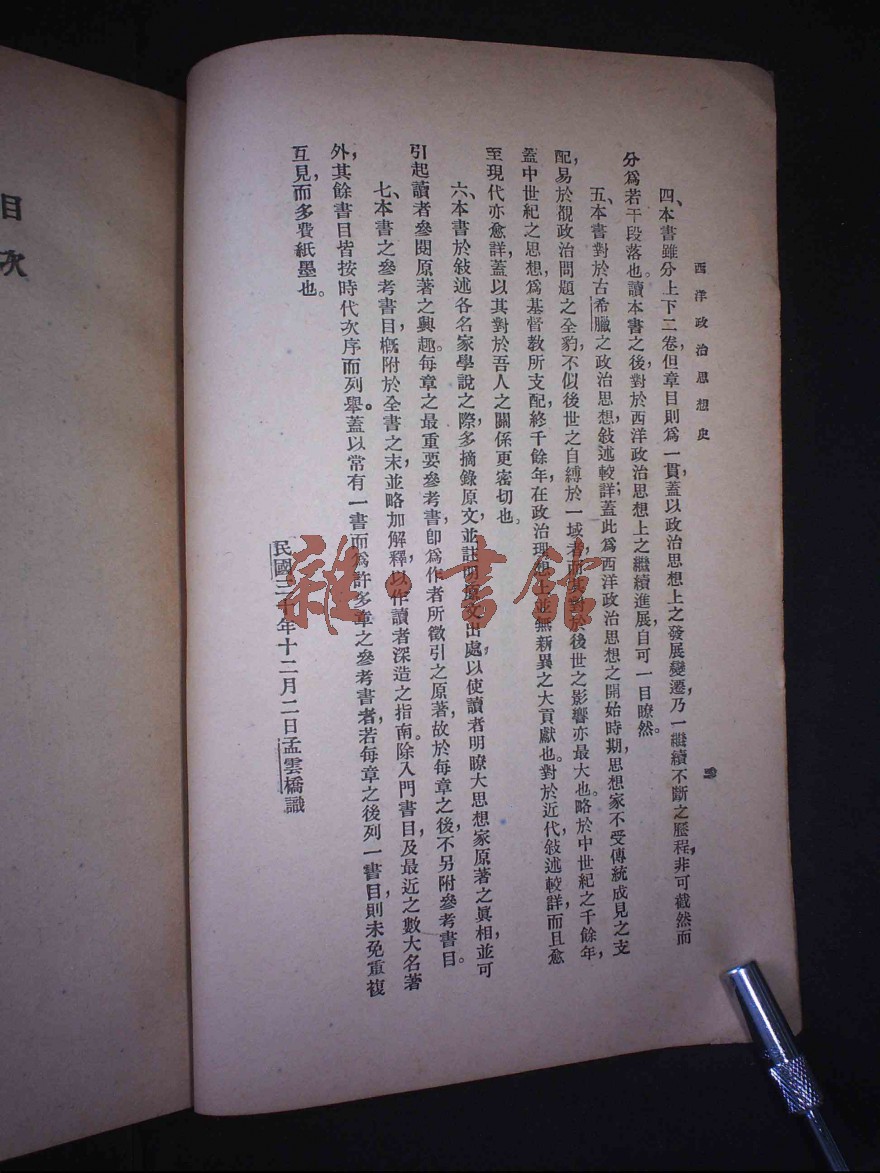 西洋政治思想史
四
四、本書雖分上下二卷,但章目則爲一貫,蓋以政治思想上之發展變遷,乃一繼續不斷之歷程,非可截然而
分爲若干段落也。讀本書之後,對於西洋政治思想上之繼續進展,自可一目瞭然。
五、本書對於古希臘之政治思想,敍述較詳;蓋此爲西洋政治思想之開始時期,思想家不受傳統成見之支
配,易於覩政治問題之全豹,不似後世之自縛於一域者,而其對於後世之影響亦最大也。略於中世紀之千餘年,
蓋中世紀之思想,爲基督敎所支配,終千餘年,在政治理想上並無新異之大貢獻也。對於近代,敍述較詳,而且愈
至現代亦愈詳,蓋以其對於吾人之關係更密切也。
六、本書於敍述各名家學說之際,多摘錄原文,並註明原文出處,以使讀者明瞭大思想家原著之眞相,並可
引起讀者參閱原著之興趣。每章之最重要參考書,卽爲作者所徵引之原著,故於每章之後,不另附參考書目。
七、本書之參考書目,槪附於全書之末,並略加解釋,以作讀者深造之指南。除入門書目,及最近之數大名著
外,其餘書目皆按時代次序而列舉。蓋以常有一書而爲許多章之參考書者,若每章之後列一書目,則未免重複
互見,而多費紙墨也。
民國三十年十二月二日孟雲橋識
目次
雜·書館